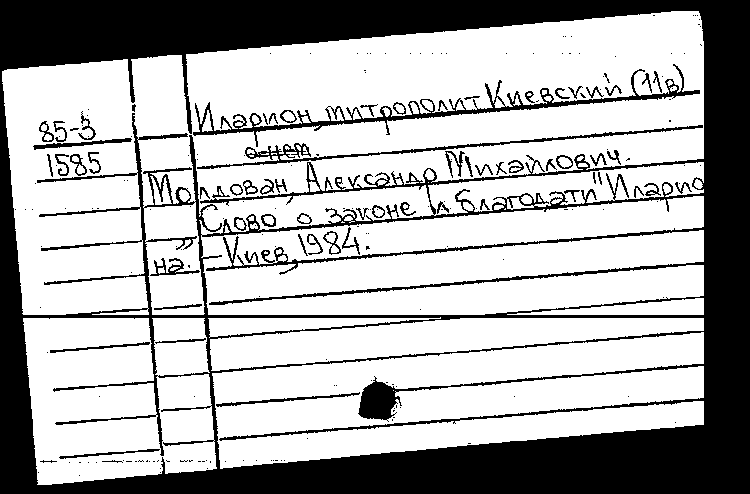 Иларион, митрополит Киевский (11в)
85-3
о нем.
1585
Молдован, Александр Михайлович.
Слово о законе и благодати" Иларио
на". – Киев, 1984.